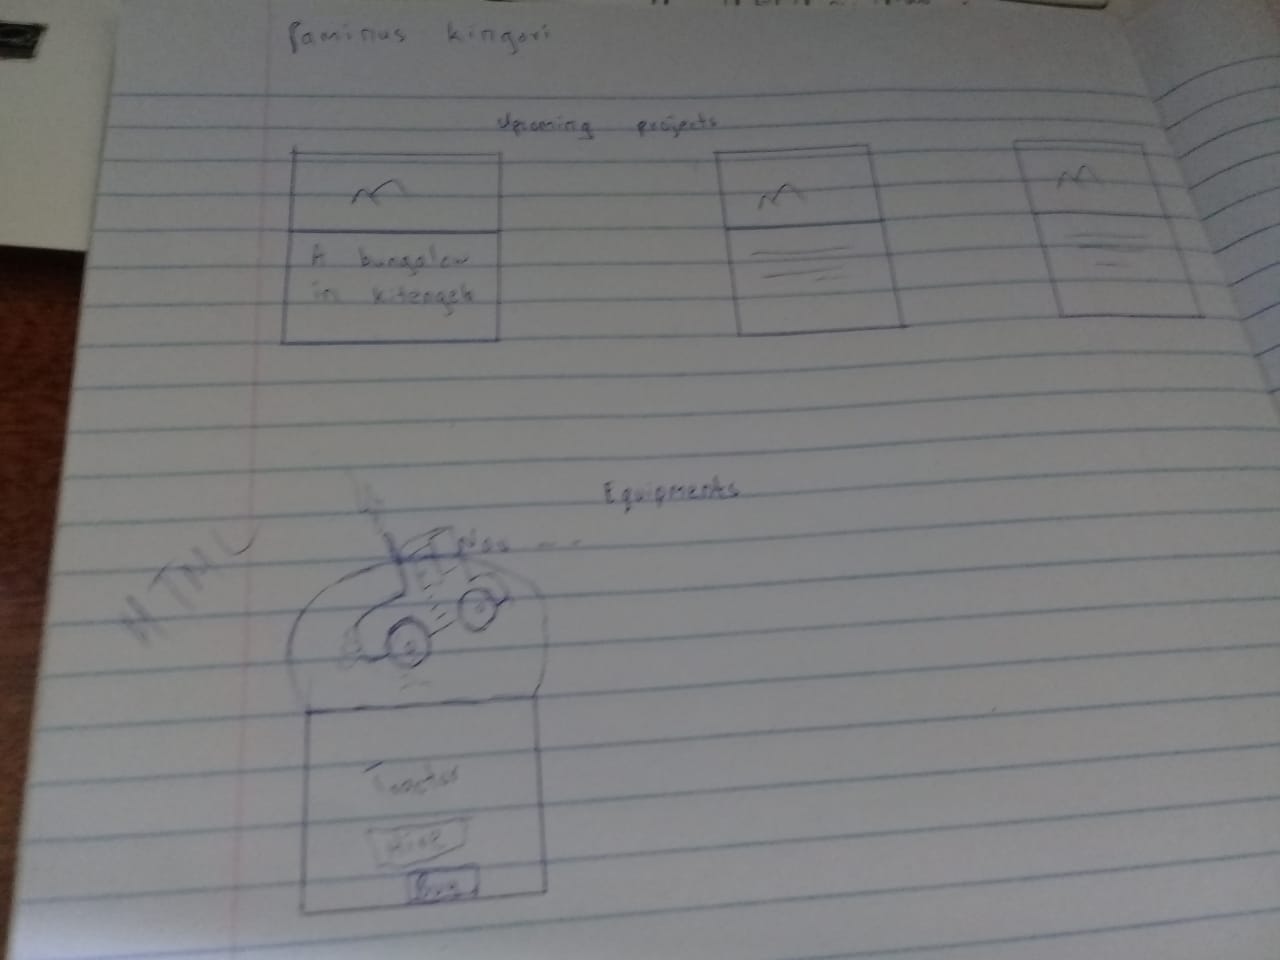 Paminus kingori
Upcoming projects
A bungalow
in kitengela
Equipments
HTML
Tractor
Hire
Buy